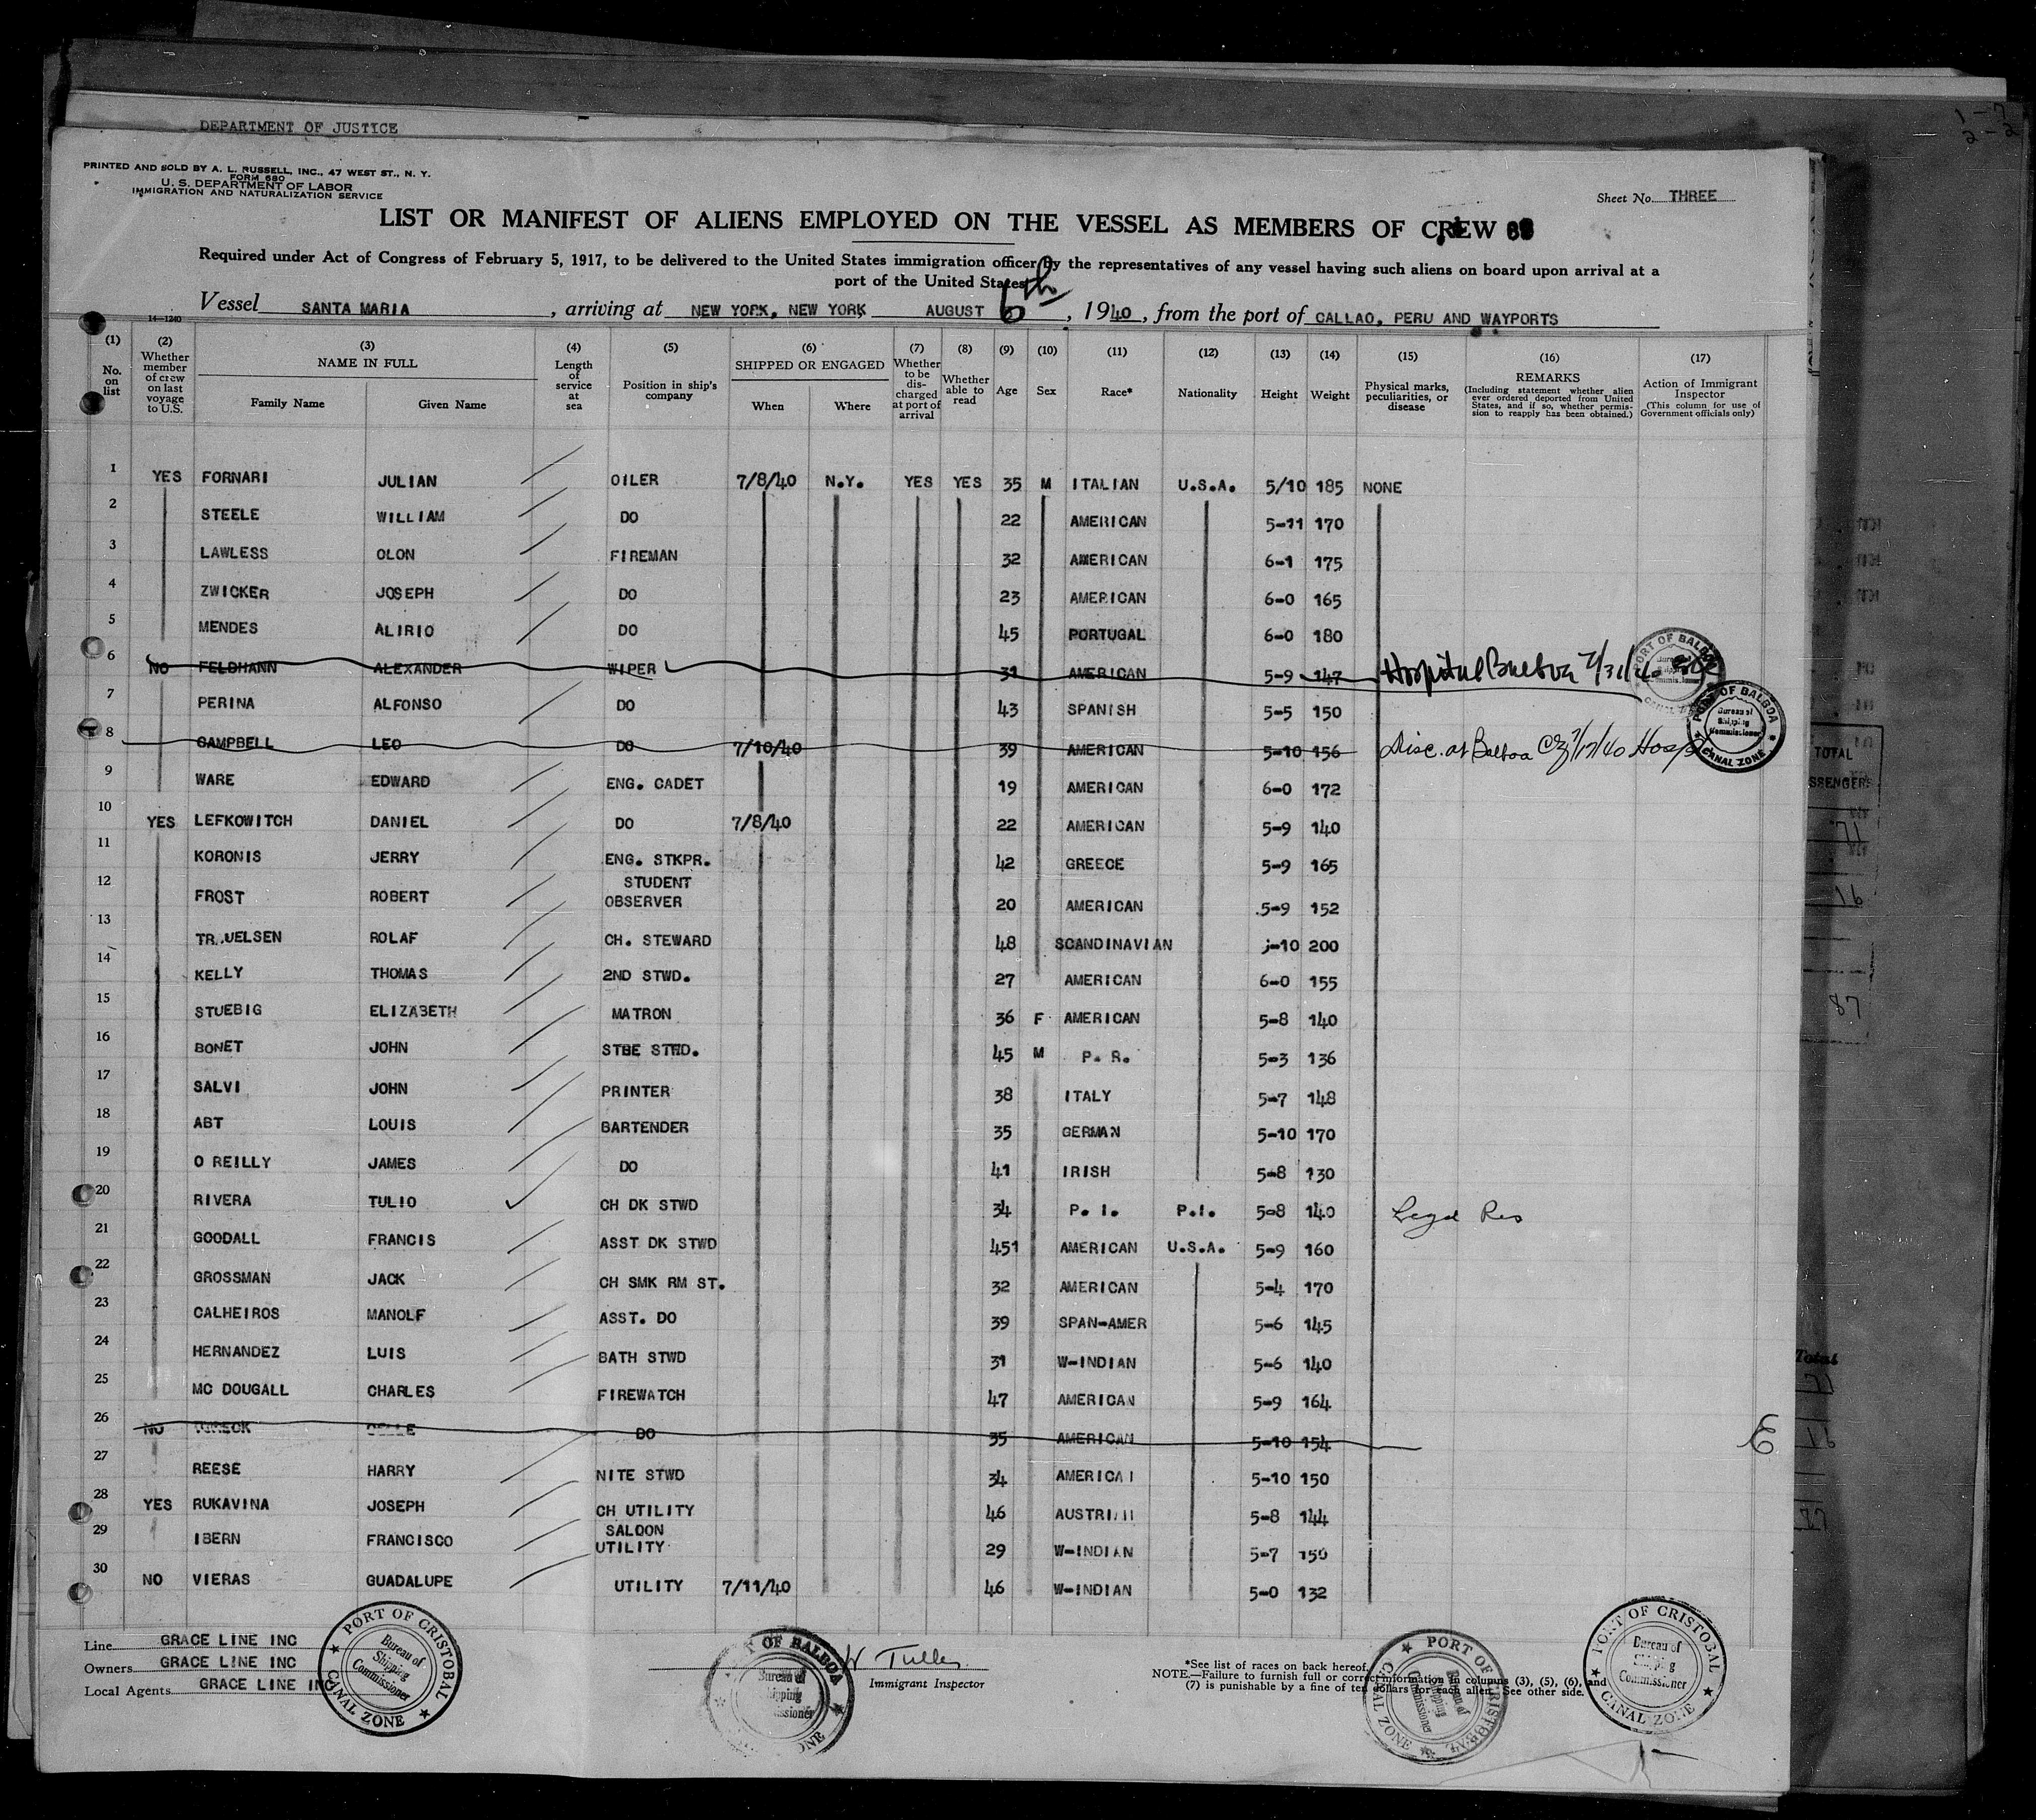 DEPARTMENT OF JUSTICE
PRINTED AND SOLD BY A. L. RUSSELL, INC., 47 WEST ST., N. Y.
FORM 680
U. S. DEPARTMENT OF LABOR
IMMIGRATION AND NATURALIZATION SERVICE
Sheet No. THREE
LIST OR MANIFEST OF ALIENS EMPLOYED ON THE VESSEL AS MEMBERS OF CREW
Required under Act of Congress of February 5, 1917, to be delivered to the United States immigration officer by the representatives of any vessel having such aliens on board upon arrival at a
port of the United States
Vessel SANTA MARIA, arriving at NEW YORK, NEW YORK AUGUST 6th, 1940, from the port of CALLAO, PERU AND WAYPORTS
14-1240
(1) (2) (3) (4) (5) (6) (7) (8) (9) (10) (11) (12) (13) (14) (15) (16) (17)
No. on list
Whether member of crew on last voyage to U.S.
NAME IN FULL
Family Name Given Name
Length of service at sea
Position in ship's company
SHIPPED OR ENGAGED
When Where
Whether to be discharged at port of arrival
Whether able to read
Age Sex Race* Nationality Height Weight
Physical marks, peculiarities, or disease
REMARKS
(Including statement whether alien ever ordered deported from United States, and if so, whether permission to reapply has been obtained.)
Action of Immigrant Inspector
(This column for use of Government officials only)
1 YES FORNARI JULIAN OILER 7/8/40 N.Y. YES YES 35 M ITALIAN U.S.A. 5/10 185 NONE
2 STEELE WILLIAM DO 22 AMERICAN 5-11 170
3 LAWLESS OLON FIREMAN 32 AMERICAN 6-1 175
4 ZWICKER JOSEPH DO 23 AMERICAN 6-0 165
5 MENDES ALIRIO DO 45 PORTUGAL 6-0 180
6 NO FELDHANN ALEXANDER WIPER 31 AMERICAN 5-9 147 Hospital Balboa 7/31/40
7 PERINA ALFONSO DO 43 SPANISH 5-5 150
8 CAMPBELL LEO DO 7/10/40 39 AMERICAN 5-10 156 Disc. at Balboa CZ 7/17/40 Hosp
9 WARE EDWARD ENG. CADET 19 AMERICAN 6-0 172
10 YES LEFKOWITCH DANIEL DO 7/8/40 22 AMERICAN 5-9 140
11 KORONIS JERRY ENG. STKPR. 42 GREECE 5-9 165
12 FROST ROBERT STUDENT OBSERVER 20 AMERICAN 5-9 152
13 ROLAF CH. STEWARD 48 SCANDINAVIAN 200
14 KELLY THOMAS 2ND STWD. 27 AMERICAN 6-0 155
15 STUEBIG ELIZABETH MATRON 36 F AMERICAN 5-8 140
16 BONET JOHN STBE STWD. 45 M P. R. 5-3 136
17 SALVI JOHN PRINTER 38 ITALY 5-7 148
18 ABT LOUIS BARTENDER 35 GERMAN 5-10 170
19 O REILLY JAMES DO 41 IRISH 5-8 130
20 RIVERA TULIO CH DK STWD 34 P. I. P.I. 5-8 140 Legal Res
21 GOODALL FRANCIS ASST DK STWD 451 AMERICAN U.S.A. 5-9 160
22 GROSSMAN JACK CH SMK RM ST. 32 AMERICAN 5-4 170
23 CALHEIROS MANOLF ASST. DO 39 SPAN-AMER 5-6 145
24 HERNANDEZ LUIS BATH STWD 31 W-INDIAN 5-6 140
25 MC DOUGALL CHARLES FIREWATCH 47 AMERICAN 5-9 164
26 NO DO 35 AMERICAN 5-10 154
27 REESE HARRY NITE STWD 34 AMERICAN 5-10 150
28 YES RUKAVINA JOSEPH CH UTILITY 46 AUSTRIAN 5-8 144
29 IBERN FRANCISCO SALOON UTILITY 29 W-INDIAN 5-7 150
30 NO VIERAS GUADALUPE UTILITY 7/11/40 46 W-INDIAN 5-0 132
PORT OF BALBOA
Bureau of Shipping Commissioner
CANAL ZONE
TOTAL
71
16
87
Total
Line GRACE LINE INC
Owners GRACE LINE INC
Local Agents GRACE LINE INC
PORT OF CRISTOBAL
Bureau of Shipping Commissioner
CANAL ZONE
OF BALBOA
Immigrant Inspector
*See list of races on back hereof.
NOTE.—Failure to furnish full or correct information in columns (3), (5), (6), and
(7) is punishable by a fine of ten dollars for each alien. See other side.
PORT OF CRISTOBAL
Bureau of Shipping Commissioner
CANAL ZONE
PORT OF CRISTOBAL
Bureau of Shipping Commissioner
CANAL ZONE